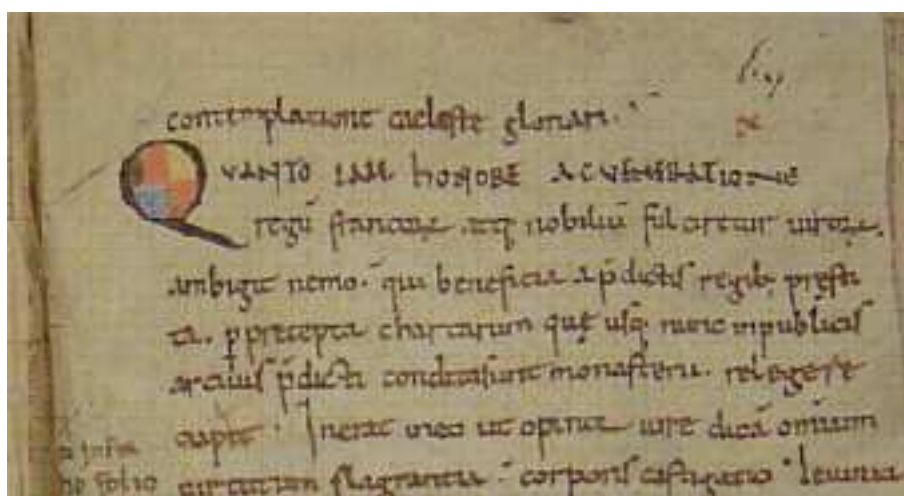 contemplatione caeleste gloriam.
QVANTO IAM honoRE AC VENERATIONE
regū francoꝝ. atq; nobiliū fulciretur uiroꝝ.
ambigit nemo. qui beneficia a p̄dictis regib; prę̨sti
ta. p precepta chartarum quę usq; nunc inpublicis
arciuis p̄dicti condita sunt monasterii. relegere
cupit. Inerat in eo ut opinor iure dicā omnium
uirtutum flagrantia. corporis castigatio.
folio